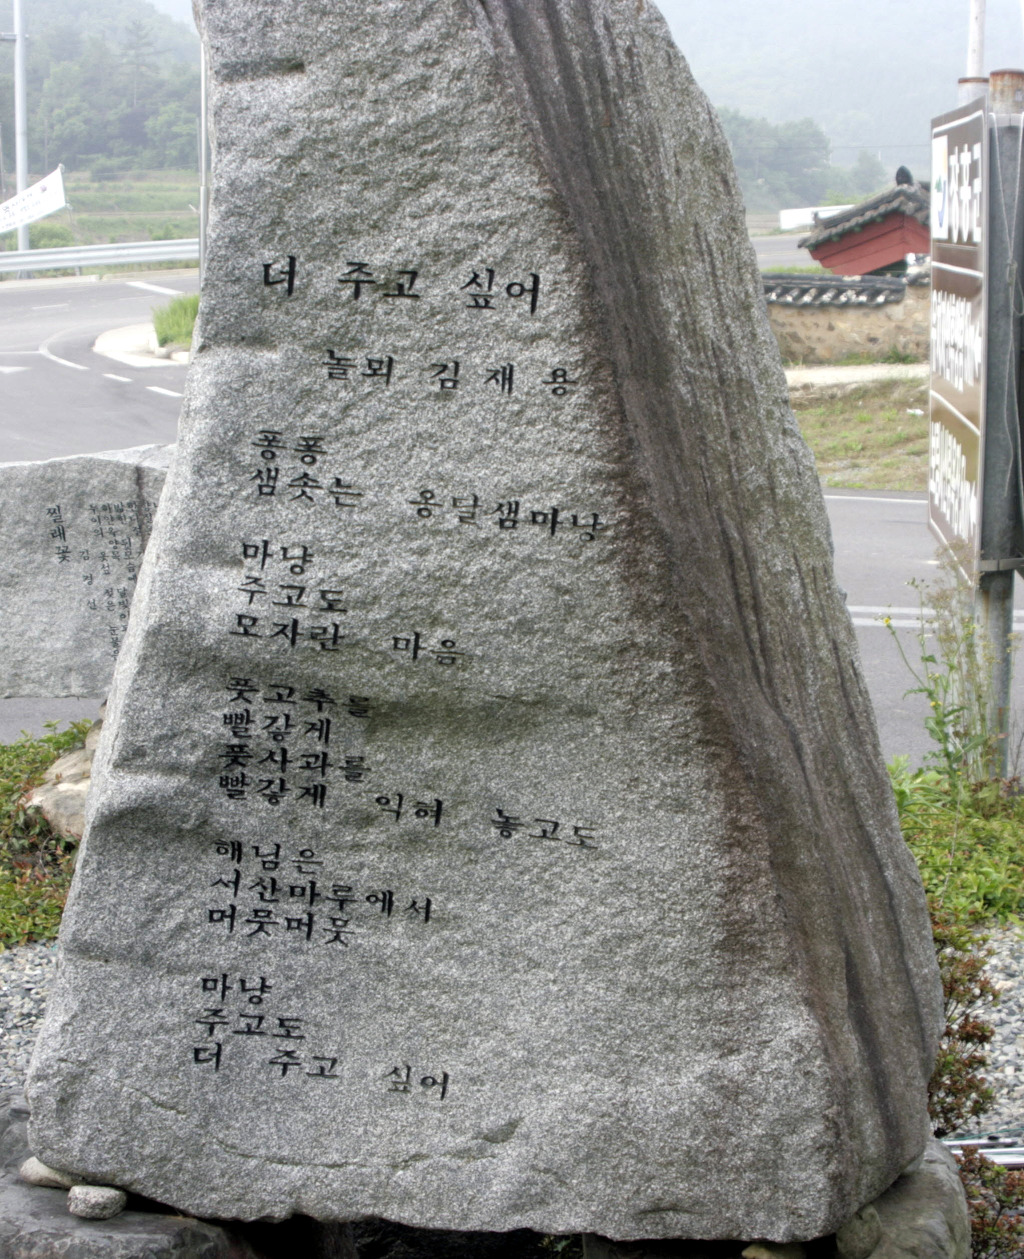 더 주고 싶어
놀뫼 김재용
퐁퐁
샘솟는 옹달샘마냥
마냥
주고도
모자란 마음
풋고추를
빨갛게
풋사과를
빨갛게 익혀 놓고도
해님은
서산마루에서
머뭇머뭇
마냥
주고도
더 주고 싶어
찔레꽃